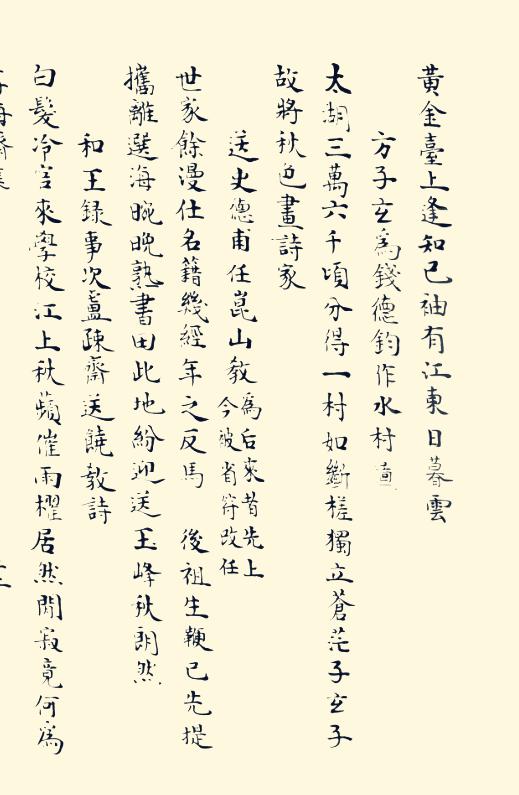 黃金臺上逢知己袖有江東日暮雲
方子玄為錢德鈞作水村
太湖三萬六千頃分得一村如斷槎獨立蒼茫子玄子
故將秋色畫詩家
送史德甫任崑山教
為后來者先上
今被省符改任
世家餘漫仕名籍幾經年之反馬 後祖生鞭已先提
攜離選海晼晚熟書田此地紛迎送玉峰秋朗然
和王録事次盧疎齋送饒教詩
白髮冷官來學校江上秋蘋催雨櫂居然閒寂竟何為